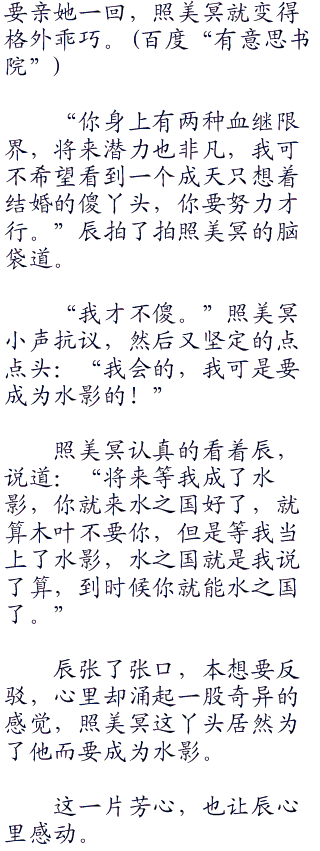 要亲她一回，照美冥就变得
格外乖巧。(百度“有意思书
院”)
“你身上有两种血继限
界，将来潜力也非凡，我可
不希望看到一个成天只想着
结婚的傻丫头，你要努力才
行。”辰拍了拍照美冥的脑
袋道。
“我才不傻。”照美冥
小声抗议，然后又坚定的点
点头：“我会的，我可是要
成为水影的！”
照美冥认真的看着辰，
说道：“将来等我成了水
影，你就来水之国好了，就
算木叶不要你，但是等我当
上了水影，水之国就是我说
了算，到时候你就能水之国
了。”
辰张了张口，本想要反
驳，心里却涌起一股奇异的
感觉，照美冥这丫头居然为
了他而要成为水影。
这一片芳心，也让辰心
里感动。